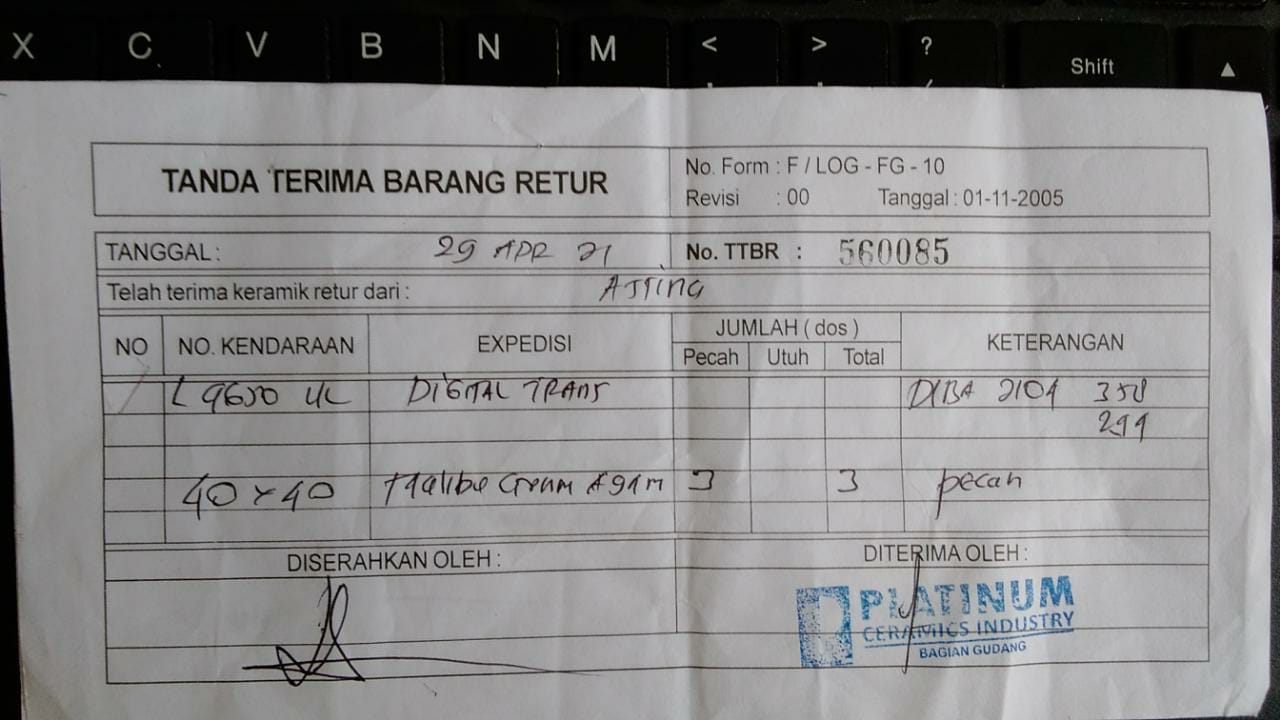 X C V B N M < > ? Shift ▲
TANDA TERIMA BARANG RETUR
No. Form : F / LOG - FG - 10
Revisi : 00 Tanggal : 01-11-2005
TANGGAL : 29 APR 21 No. TTBR : 560085
Telah terima keramik retur dari :
NO NO. KENDARAAN EXPEDISI JUMLAH ( dos ) KETERANGAN
Pecah Utuh Total
L 9650 UL DIGITAL TRANS DIBA 2104 358
299
40 x 40 Cream 3 3 pecah
DISERAHKAN OLEH : DITERIMA OLEH :
PLATINUM
CERAMICS INDUSTRY
BAGIAN GUDANG